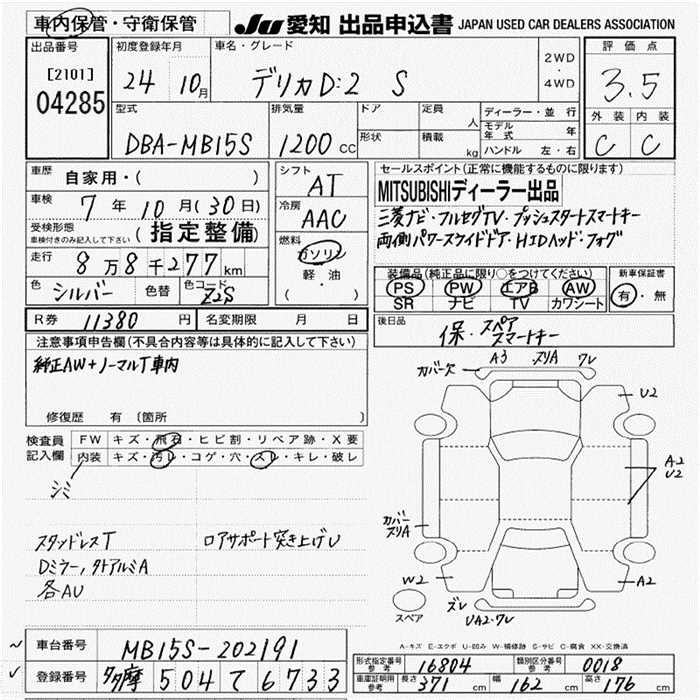 車内保管・守衛保管
JU 愛知 出品申込書 JAPAN USED CAR DEALERS ASSOCIATION
出品番号
[2101]
04285
初度登録年月
24 10月
車名・グレード
デリカD:2 S
2WD
・
4WD
評価点
3.5
外装 内装
C C
型式
DBA-MB15S
排気量
1200 cc
ドア
形状
定員 人
積載 kg
ディーラー・並行
モデル年式 年
ハンドル 左・右
車歴 自家用・( )
車検 7年10月(30日)
受検形態
車検付きのみ記入して下さい
(指定整備)
走行 8万8千277km
色 シルバー 色替 色コード Z2S
シフト
AT
冷房
AAC
燃料
ガソリン
軽・油
( )
セールスポイント(正常に機能するものに限ります)
MITSUBISHIディーラー出品
三菱ナビ・フルセグTV・プッシュスタートスマートキー
両側パワースライドドア・HIDヘッド・フォグ
装備品(純正品に限り○をつけてください)
PS PW エアB AW
SR ナビ TV カワシート
新車保証書
有・無
R券 11380円 名変期限 月 日
後日品
保・スペア
スマートキー
注意事項申告欄(不具合内容等は具体的に記入して下さい)
純正AW+ノーマルT車内
修復歴 有 〔箇所 〕
検査員
記入欄
FW キズ・飛石・ヒビ割・リペア跡・X要
内装 キズ・汚レ・コゲ・穴・スレ・キレ・破レ
シミ
スタッドレスT
ロアサポート突き上げU
Dミラー,外ドアルミA
各AU
カバー欠
A3 ズリA ワレ
U2
A2
U2
カバー
ズリA
W2
A2
スペア
ズレ
UA2・ワレ
A-キズ E-エクボ U-凹み W-補修跡 S-サビ C-腐食 XX-交換済
車台番号 MB15S-202191
登録番号 多摩 504 て 6733
形式指定番号
参考
16804
類別区分番号
参考
0018
車庫証明用
参考
長さ 371cm 幅 162cm 高さ 176cm